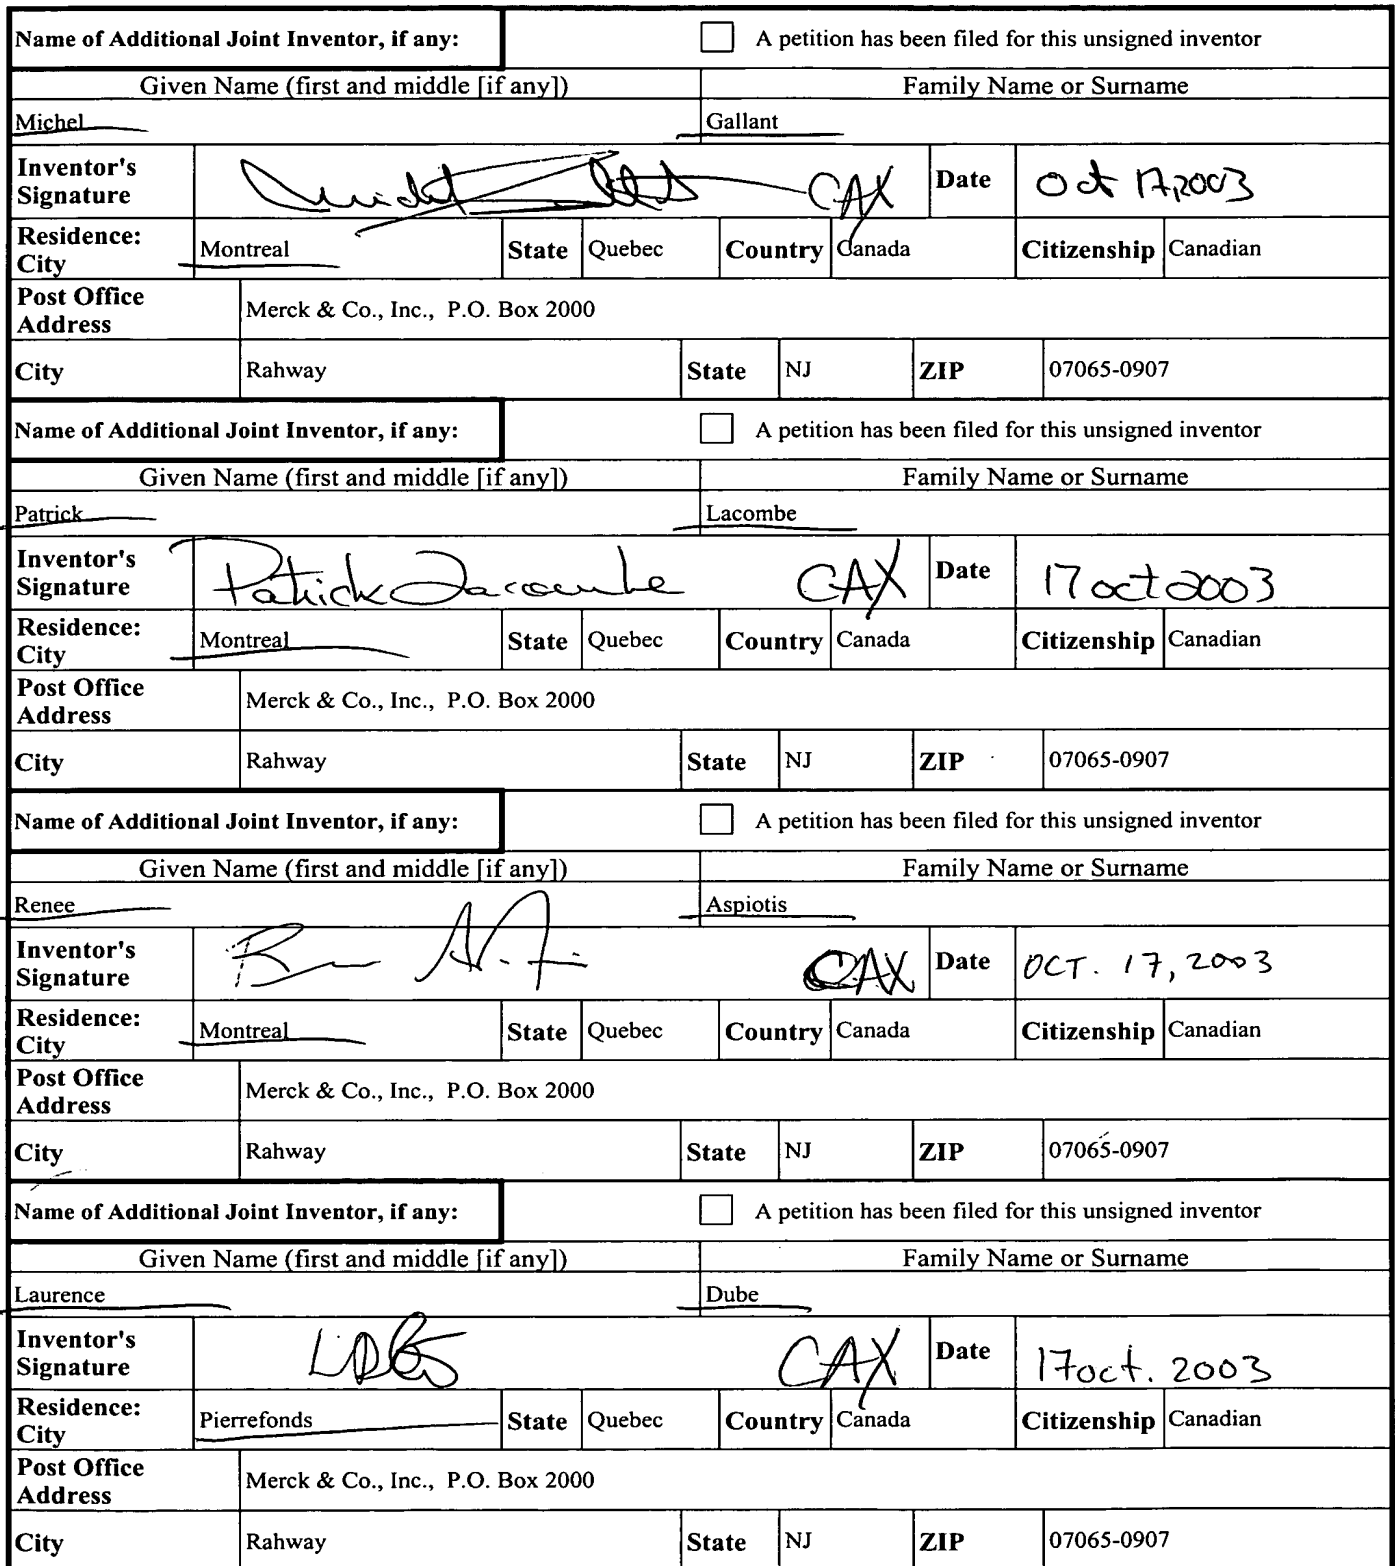 Name of Additional Joint Inventor, if any: A petition has been filed for this unsigned inventor
Given Name (first and middle [if any]) Family Name or Surname
Michel Gallant
Inventor's Signature CAX Date Oct 17, 2003
Residence: City Montreal State Quebec Country Canada Citizenship Canadian
Post Office Address Merck & Co., Inc., P.O. Box 2000
City Rahway State NJ ZIP 07065-0907
Name of Additional Joint Inventor, if any: A petition has been filed for this unsigned inventor
Given Name (first and middle [if any]) Family Name or Surname
Patrick Lacombe
Inventor's Signature Patrick Lacombe CAX Date 17 oct 2003
Residence: City Montreal State Quebec Country Canada Citizenship Canadian
Post Office Address Merck & Co., Inc., P.O. Box 2000
City Rahway State NJ ZIP 07065-0907
Name of Additional Joint Inventor, if any: A petition has been filed for this unsigned inventor
Given Name (first and middle [if any]) Family Name or Surname
Renee Aspiotis
Inventor's Signature CAX Date OCT. 17, 2003
Residence: City Montreal State Quebec Country Canada Citizenship Canadian
Post Office Address Merck & Co., Inc., P.O. Box 2000
City Rahway State NJ ZIP 07065-0907
Name of Additional Joint Inventor, if any: A petition has been filed for this unsigned inventor
Given Name (first and middle [if any]) Family Name or Surname
Laurence Dube
Inventor's Signature CAX Date 17 oct. 2003
Residence: City Pierrefonds State Quebec Country Canada Citizenship Canadian
Post Office Address Merck & Co., Inc., P.O. Box 2000
City Rahway State NJ ZIP 07065-0907